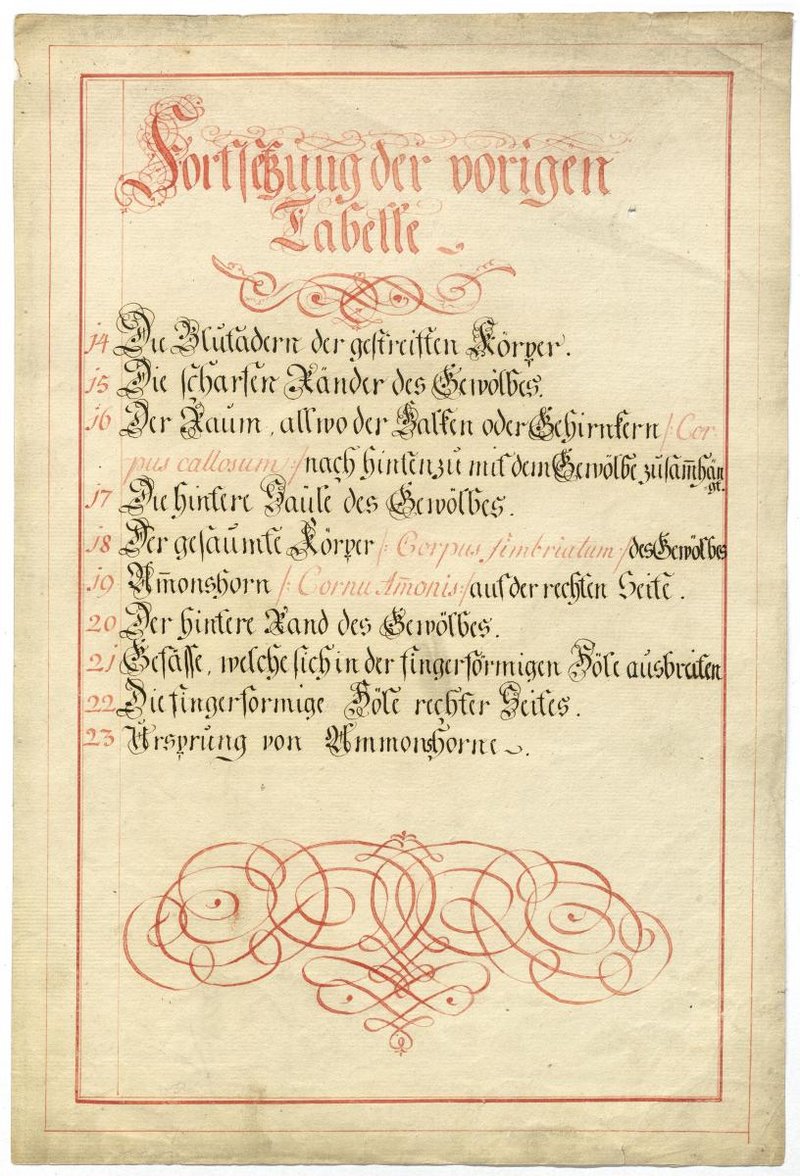 Fortsetzung der vorigen
Tabelle
14 Die Blutadern der gestreiften Körper.
15 Die scharfen Ränder des Gewölbes.
16 Der Raum, allwo der Balken oder Gehirnkern /: Cor-
pus callosum :/ nach hinten zu mit dem Gewölbe zusam̄hängt.
17 Die hintere Säule des Gewölbes.
18 Der gesäumte Körper /: Corpus fimbriatum :/ des Gewölbes
19 Am̄onshorn /: Cornu Am̄onis :/ auf der rechten Seite.
20 Der hintere Rand des Gewölbes.
21 Gefässe, welche sich in der fingerförmigen Höle ausbreiten
22 Die fingerformige Höle rechter Seites.
23 Ursprung von Ammonshorne.